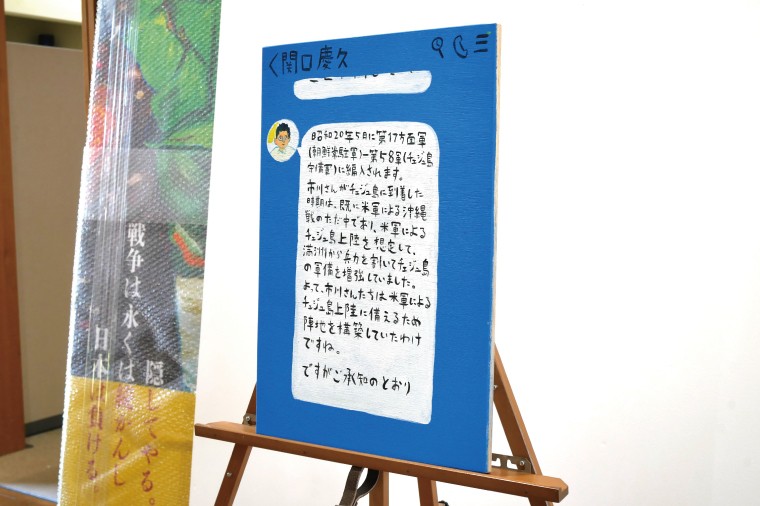 <関口慶久
昭和20年5月に第17方面軍
(朝鮮米駐軍)ー第58軍(チェジュ島
守備軍)に編入されます。
市川さんがチェジュ島に到着した
時期は、既に米軍による沖縄
戦のただ中であり、米軍による
チェジュ島上陸を想定して、
満洲から兵力を割いてチェジュ島
の軍備を増強していました。
よって、市川さんたちは米軍による
チェジュ島上陸に備えるため
陣地を構築していたわけ
ですね。
ですがご承知のとおり
隠してやる。
戦争は永くは続かんし
日本は負ける